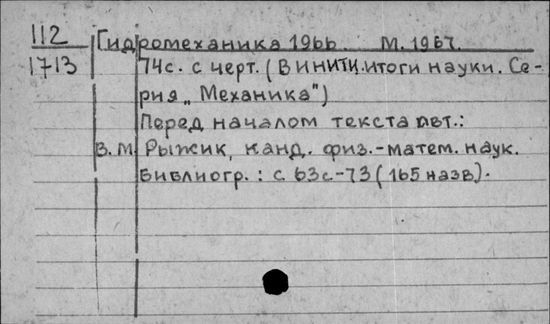 112
1713
Гидромеханика 1966. М. 1967.
74с. с черт. (ВИНИТИ. итоги науки. Се-
рия „Механика")
Перед началом текста авт.:
В.М. Рыжик, канд. физ.-матем. наук.
Библиогр.: с 63с-73 (165 назв).